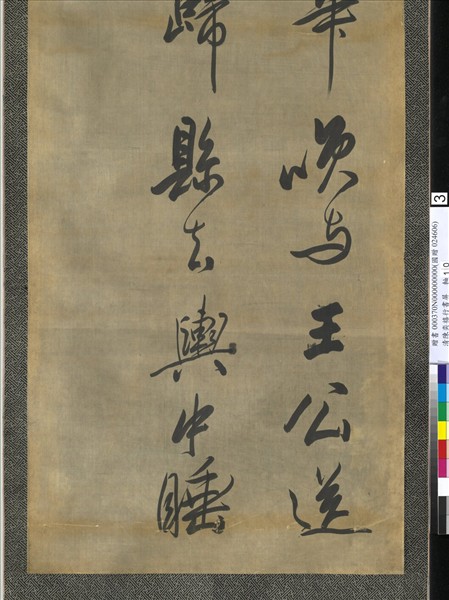 喚与王公送
歸縣去輿中睡
3
贈書 000370N000000000(國贈 024606)
清陳奕禧行書屏 軸 1:0